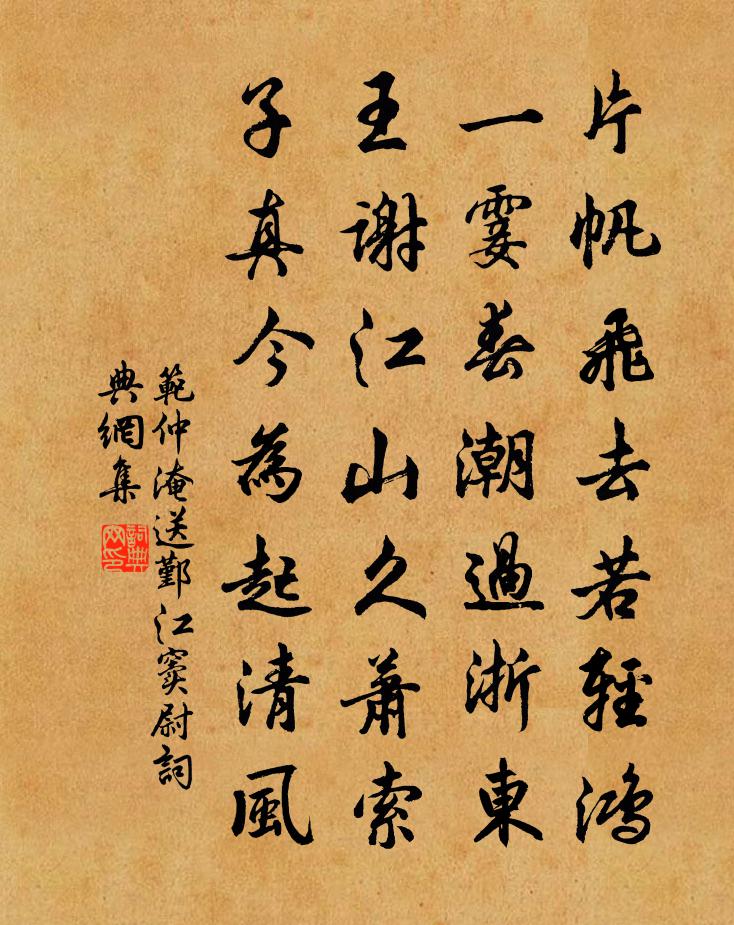 片帆飛去若輕鴻
一霎春潮過浙東
王謝江山久蕭索
子真今為起清風
範仲淹送鄞江竇尉詞
典網集
詞典
网印